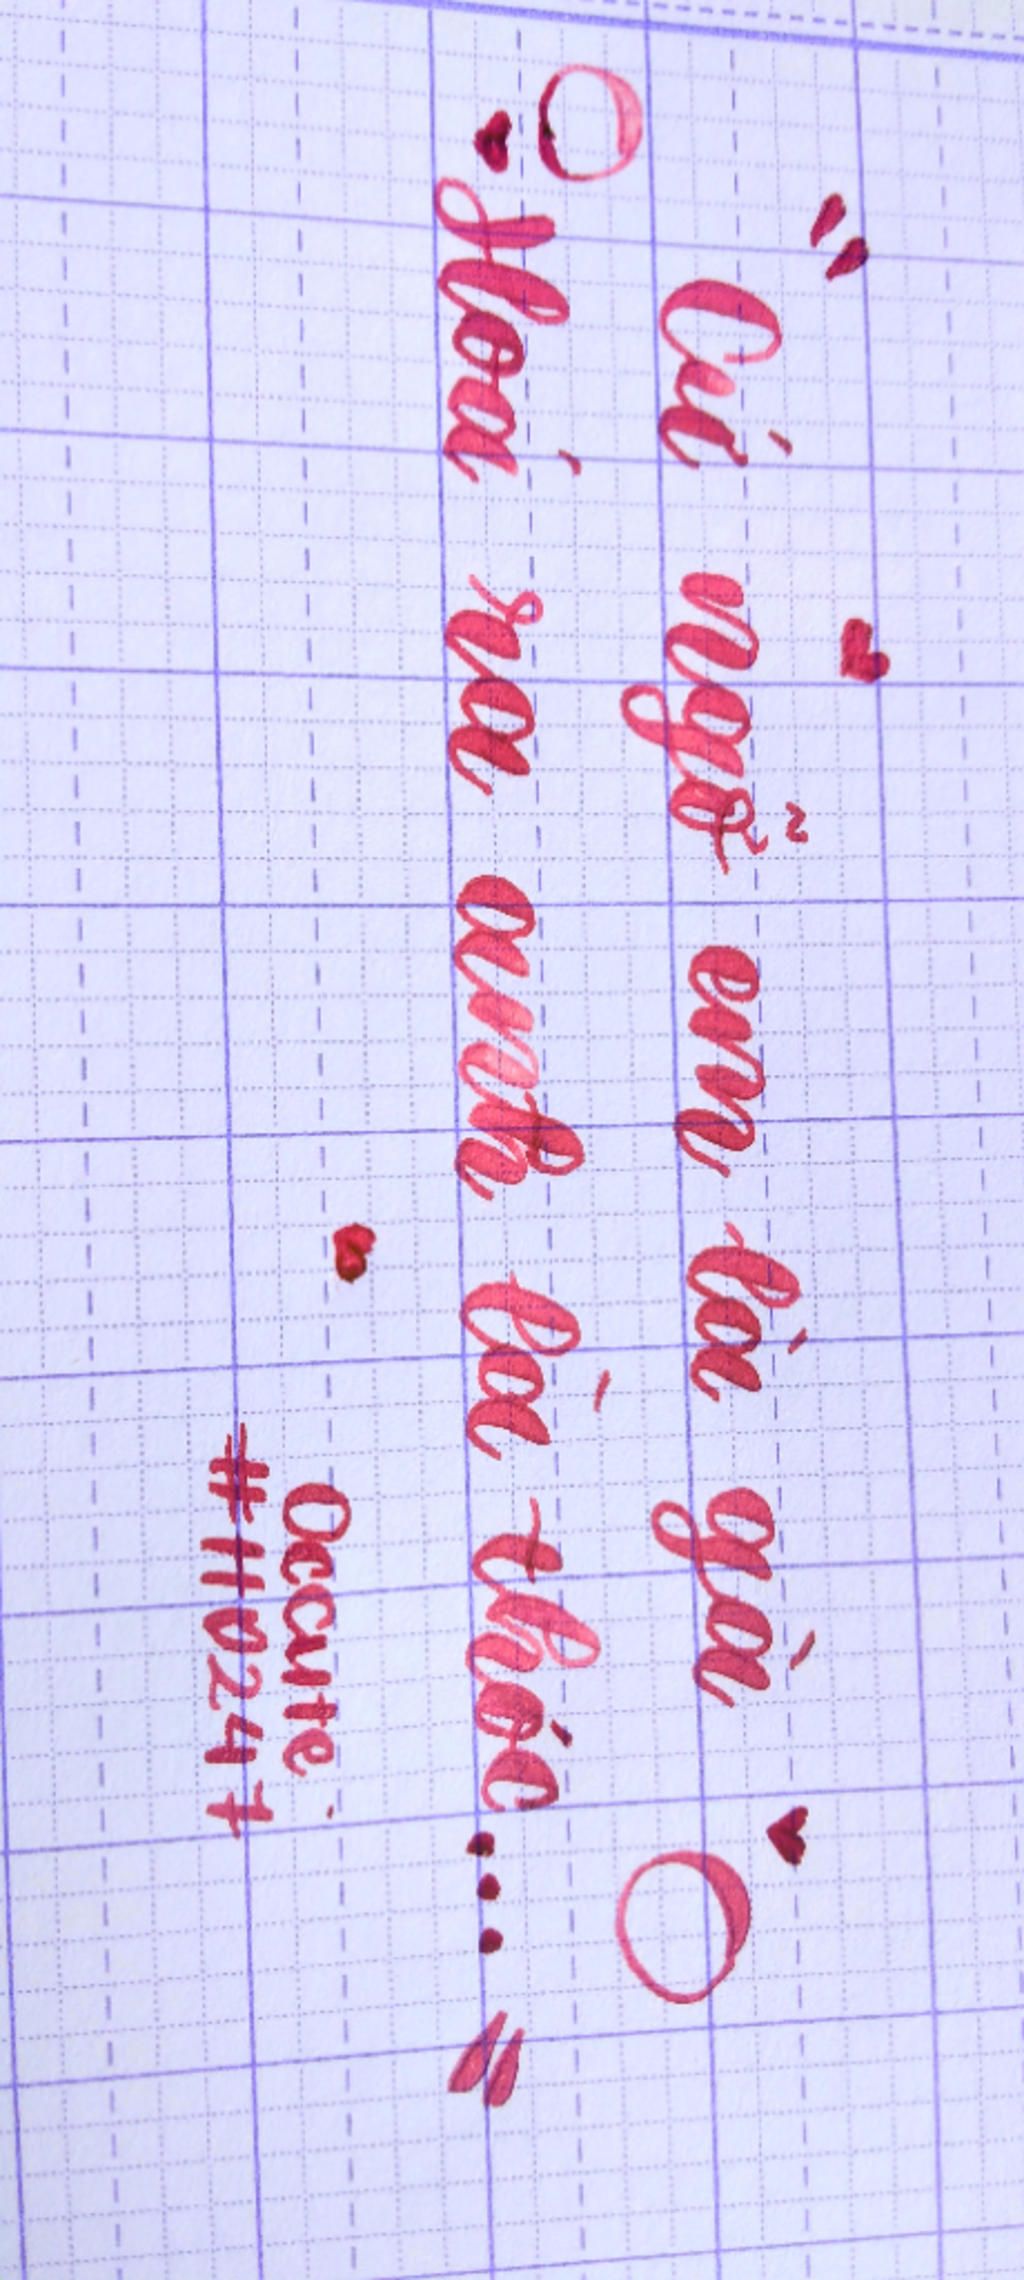 " Cứ ngở em là gà
Hoá ra anh là thóc... "
Occute.
#110247